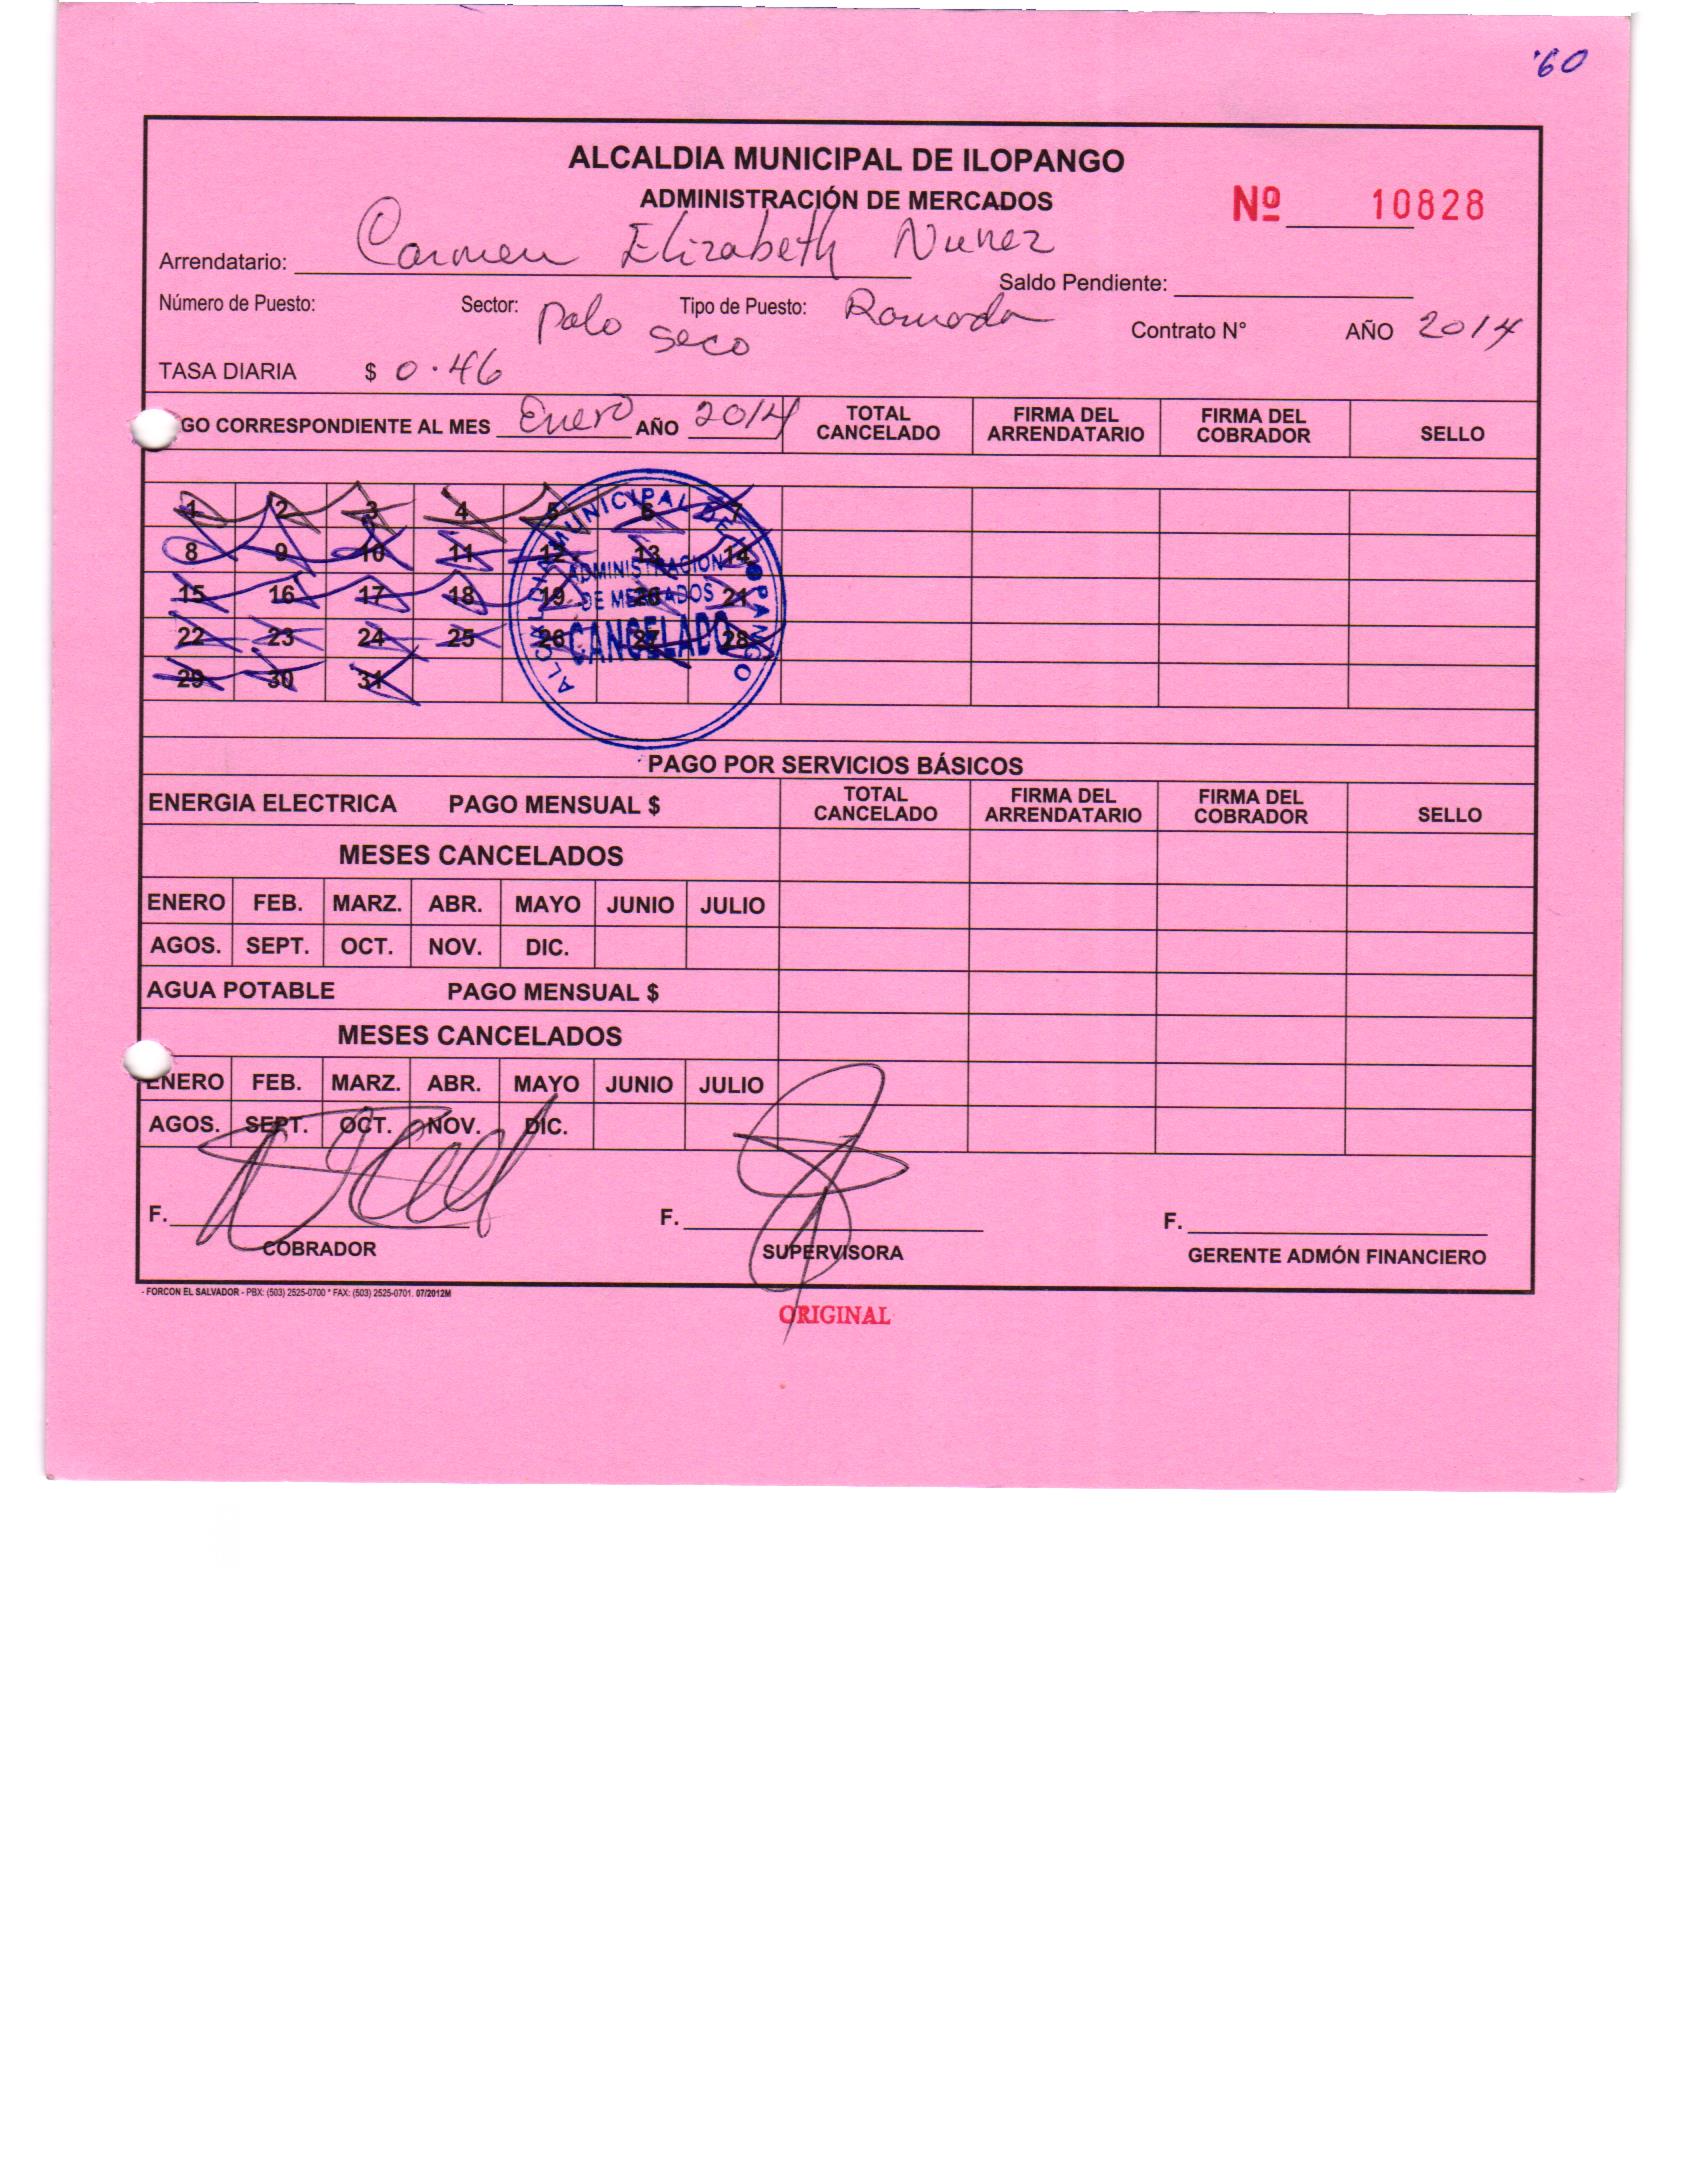 '60
ALCALDIA MUNICIPAL DE ILOPANGO
ADMINISTRACIÓN DE MERCADOS
Nº 10828
Arrendatario: Carmen Elizabeth Nunez
Saldo Pendiente:
Número de Puesto: Sector: Palo seco Tipo de Puesto: Ramada
Contrato N° AÑO 2014
TASA DIARIA $ 0.46
GO CORRESPONDIENTE AL MES Enero AÑO 2014 TOTAL CANCELADO FIRMA DEL ARRENDATARIO FIRMA DEL COBRADOR SELLO
1 2 3 4 5 6 7
8 9 10 11 12 13 14
15 16 17 18 19 20 21
22 23 24 25 26 27 28
29 30 31
ALCALDIA MUNICIPAL DE ILOPANGO
ADMINISTRACION
DE MERCADOS
CANCELADO
PAGO POR SERVICIOS BÁSICOS
ENERGIA ELECTRICA PAGO MENSUAL $ TOTAL CANCELADO FIRMA DEL ARRENDATARIO FIRMA DEL COBRADOR SELLO
MESES CANCELADOS
ENERO FEB. MARZ. ABR. MAYO JUNIO JULIO
AGOS. SEPT. OCT. NOV. DIC.
AGUA POTABLE PAGO MENSUAL $
MESES CANCELADOS
ENERO FEB. MARZ. ABR. MAYO JUNIO JULIO
AGOS. SEPT. OCT. NOV. DIC.
F. F. F.
COBRADOR SUPERVISORA GERENTE ADMÓN FINANCIERO
- FORCON EL SALVADOR - PBX: (503) 2525-0700 * FAX: (503) 2525-0701. 07/2012M
ORIGINAL